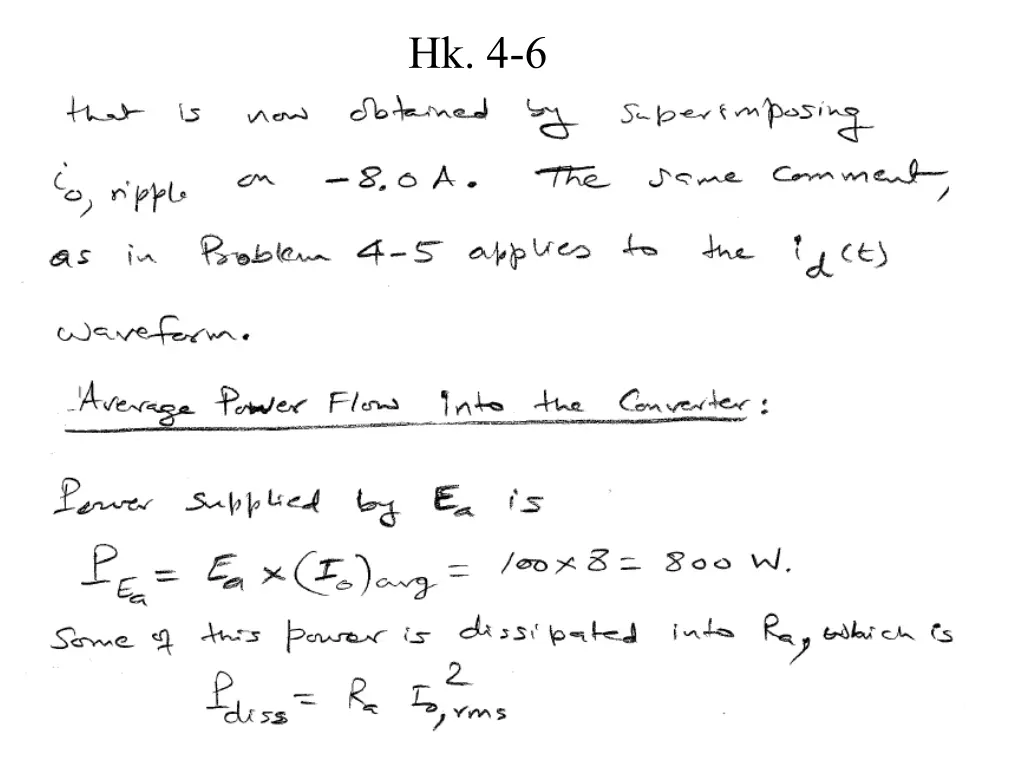 Hk. 4-6
that is now obtained by superimposing
i₀, ripple on -8.0 A. The same comment,
as in Problem 4-5 applies to the i_d(t)
waveform.
Average Power Flow into the Converter:
Power supplied by Eₐ is
P_Eₐ = Eₐ × (I₀)avg = 100 × 8 = 800 W.
Some of this power is dissipated into Rₐ, which is
P_diss = Rₐ I₀,rms²